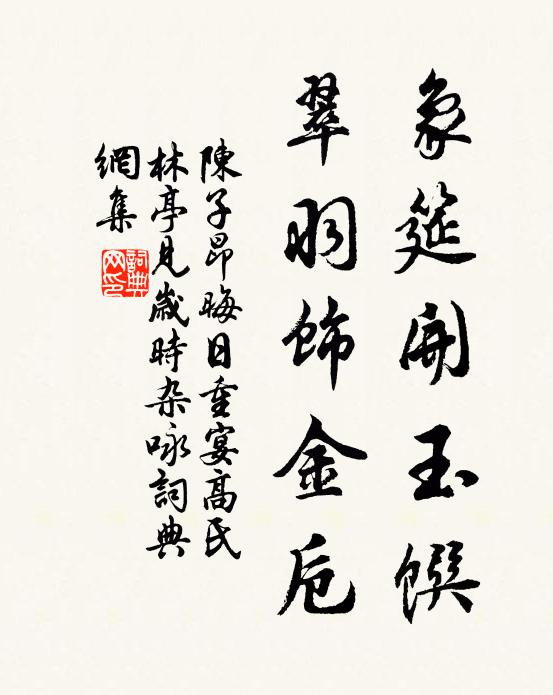 象筵開玉饌
翠羽飾金卮
陳子昂晦日重宴高氏
林亭見歲時杂咏詞典
網集
詞典
网印